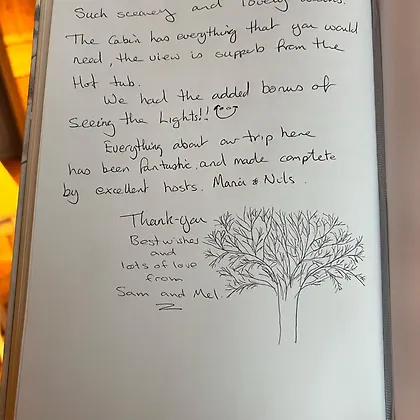 Such scenery and lovely
The Cabin has everything that you would
need, the view is suppetb from the
Hot tub.
We had the added bonus of
Seeing the Lights!!
Everything about our trip here
has been fantastic, and made complete
by excellent hosts. Maria & Nils.
Thank-you
Best wishes
and
lots of love
from
Sam and Mel.